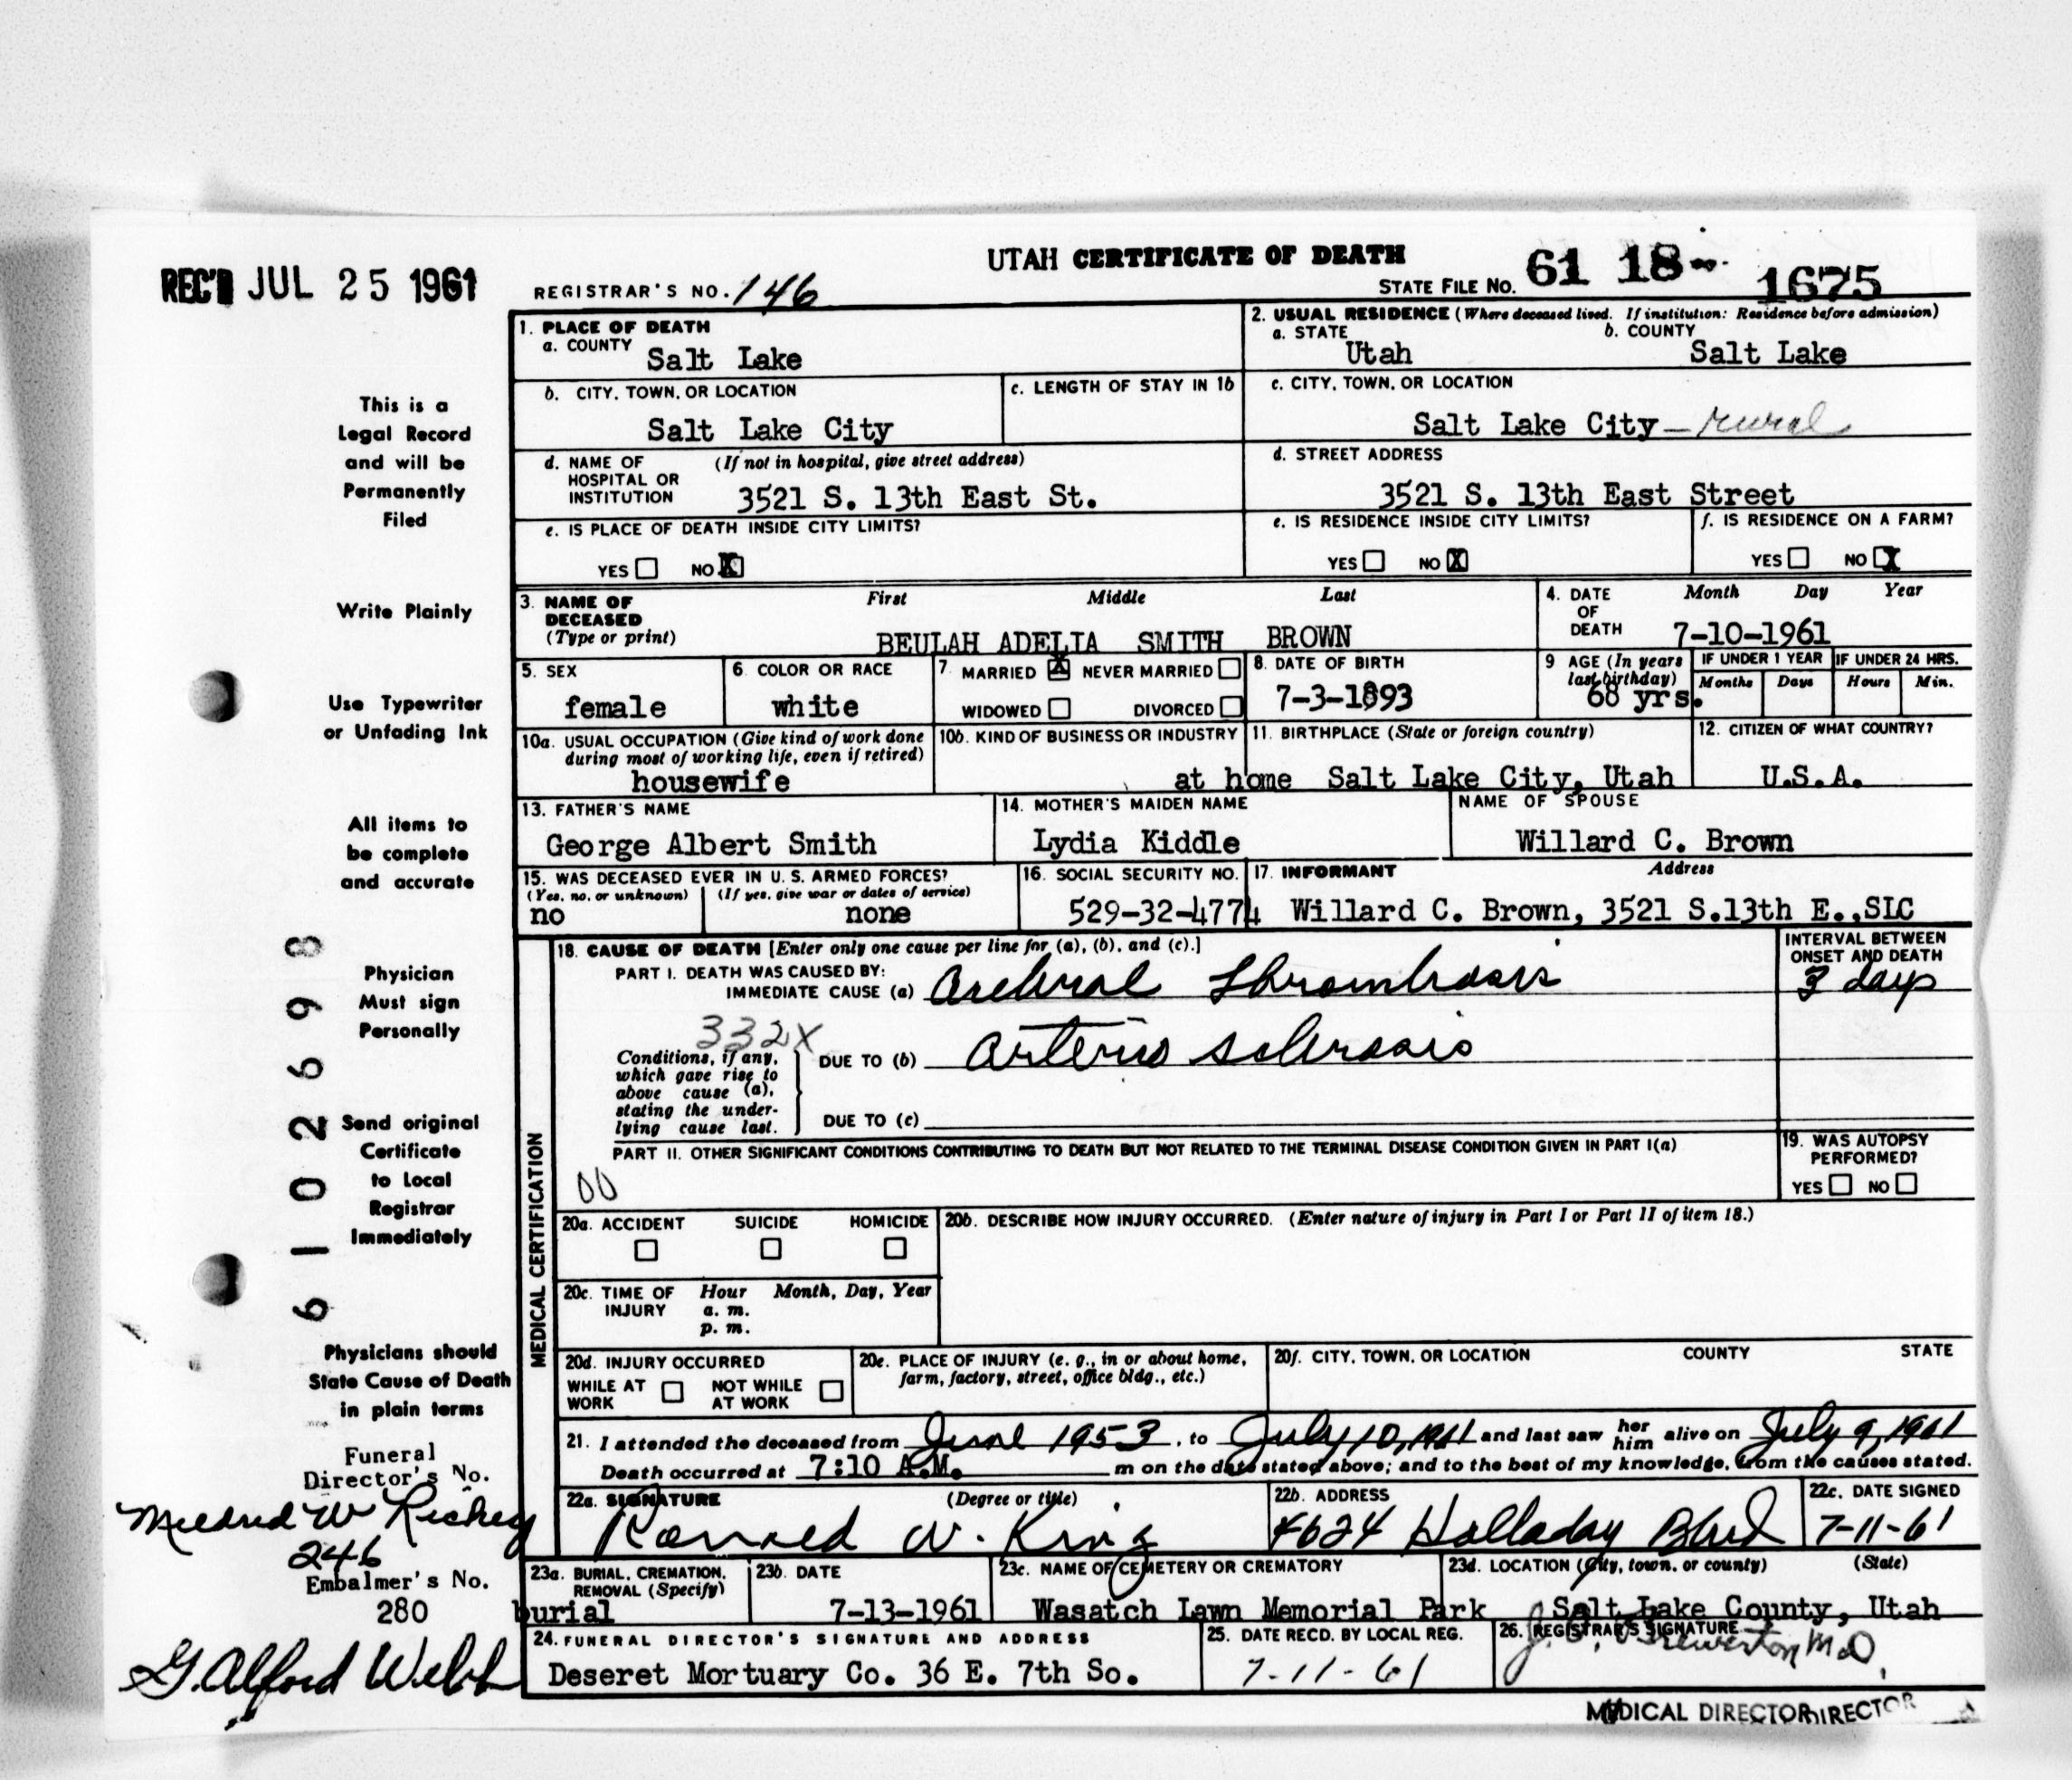 UTAH CERTIFICATE OF DEATH
REC'D JUL 25 1961
REGISTRAR'S NO. 146
STATE FILE NO. 61 18- 1675
1. PLACE OF DEATH
a. COUNTY
Salt Lake
2. USUAL RESIDENCE (Where deceased lived. If institution: Residence before admission)
a. STATE
Utah
b. COUNTY
Salt Lake
b. CITY, TOWN, OR LOCATION
Salt Lake City
c. LENGTH OF STAY IN 1b
c. CITY, TOWN, OR LOCATION
Salt Lake City - rural
d. NAME OF HOSPITAL OR INSTITUTION
(If not in hospital, give street address)
3521 S. 13th East St.
d. STREET ADDRESS
3521 S. 13th East Street
e. IS PLACE OF DEATH INSIDE CITY LIMITS?
YES NO X
e. IS RESIDENCE INSIDE CITY LIMITS?
YES NO X
f. IS RESIDENCE ON A FARM?
YES NO X
3. NAME OF DECEASED
(Type or print)
First Middle Last
BEULAH ADELIA SMITH BROWN
4. DATE OF DEATH
Month Day Year
7-10-1961
5. SEX
female
6. COLOR OR RACE
white
7. MARRIED X NEVER MARRIED
WIDOWED DIVORCED
8. DATE OF BIRTH
7-3-1893
9 AGE (In years last birthday)
68 yrs.
IF UNDER 1 YEAR
Months Days
IF UNDER 24 HRS.
Hours Min.
10a. USUAL OCCUPATION (Give kind of work done during most of working life, even if retired)
housewife
10b. KIND OF BUSINESS OR INDUSTRY
at home
11. BIRTHPLACE (State or foreign country)
Salt Lake City, Utah
12. CITIZEN OF WHAT COUNTRY?
U.S.A.
13. FATHER'S NAME
George Albert Smith
14. MOTHER'S MAIDEN NAME
Lydia Kiddle
NAME OF SPOUSE
Willard C. Brown
15. WAS DECEASED EVER IN U. S. ARMED FORCES?
(Yes, no, or unknown) (If yes, give war or dates of service)
no none
16. SOCIAL SECURITY NO.
529-32-4774
17. INFORMANT Address
Willard C. Brown, 3521 S.13th E.,SLC
18. CAUSE OF DEATH [Enter only one cause per line for (a), (b), and (c).]
PART I. DEATH WAS CAUSED BY:
IMMEDIATE CAUSE (a) Cerebral Thrombosis
INTERVAL BETWEEN ONSET AND DEATH
3 days
332X
Conditions, if any, which gave rise to above cause (a), stating the underlying cause last.
DUE TO (b) Arterio sclerosis
DUE TO (c)
PART II. OTHER SIGNIFICANT CONDITIONS CONTRIBUTING TO DEATH BUT NOT RELATED TO THE TERMINAL DISEASE CONDITION GIVEN IN PART I(a)
00
19. WAS AUTOPSY PERFORMED?
YES NO
MEDICAL CERTIFICATION
20a. ACCIDENT SUICIDE HOMICIDE
20b. DESCRIBE HOW INJURY OCCURRED. (Enter nature of injury in Part I or Part II of item 18.)
20c. TIME OF INJURY
Hour Month, Day, Year
a. m.
p. m.
20d. INJURY OCCURRED
WHILE AT WORK NOT WHILE AT WORK
20e. PLACE OF INJURY (e. g., in or about home, farm, factory, street, office bldg., etc.)
20f. CITY, TOWN, OR LOCATION COUNTY STATE
21. I attended the deceased from June 1953, to July 10, 1961 and last saw her him alive on July 9, 1961
Death occurred at 7:10 A.M. m on the date stated above; and to the best of my knowledge, from the causes stated.
22a. SIGNATURE (Degree or title)
Ronald W. King
22b. ADDRESS
4624 Holladay Blvd
22c. DATE SIGNED
7-11-61
23a. BURIAL, CREMATION, REMOVAL (Specify)
burial
23b. DATE
7-13-1961
23c. NAME OF CEMETERY OR CREMATORY
Wasatch Lawn Memorial Park
23d. LOCATION (City, town, or county) (State)
Salt Lake County, Utah
24. FUNERAL DIRECTOR'S SIGNATURE AND ADDRESS
Deseret Mortuary Co. 36 E. 7th So.
25. DATE RECD. BY LOCAL REG.
7-11-61
26. REGISTRAR'S SIGNATURE
M.D.
MEDICAL DIRECTOR DIRECTOR
This is a
Legal Record
and will be
Permanently
Filed
Write Plainly
Use Typewriter
or Unfading Ink
All items to
be complete
and accurate
Physician
Must sign
Personally
Send original
Certificate
to Local
Registrar
Immediately
Physicians should
State Cause of Death
in plain terms
6102698
Funeral
Director's No.
Mildred W Richey
246
Embalmer's No.
280
G. Alford Webb